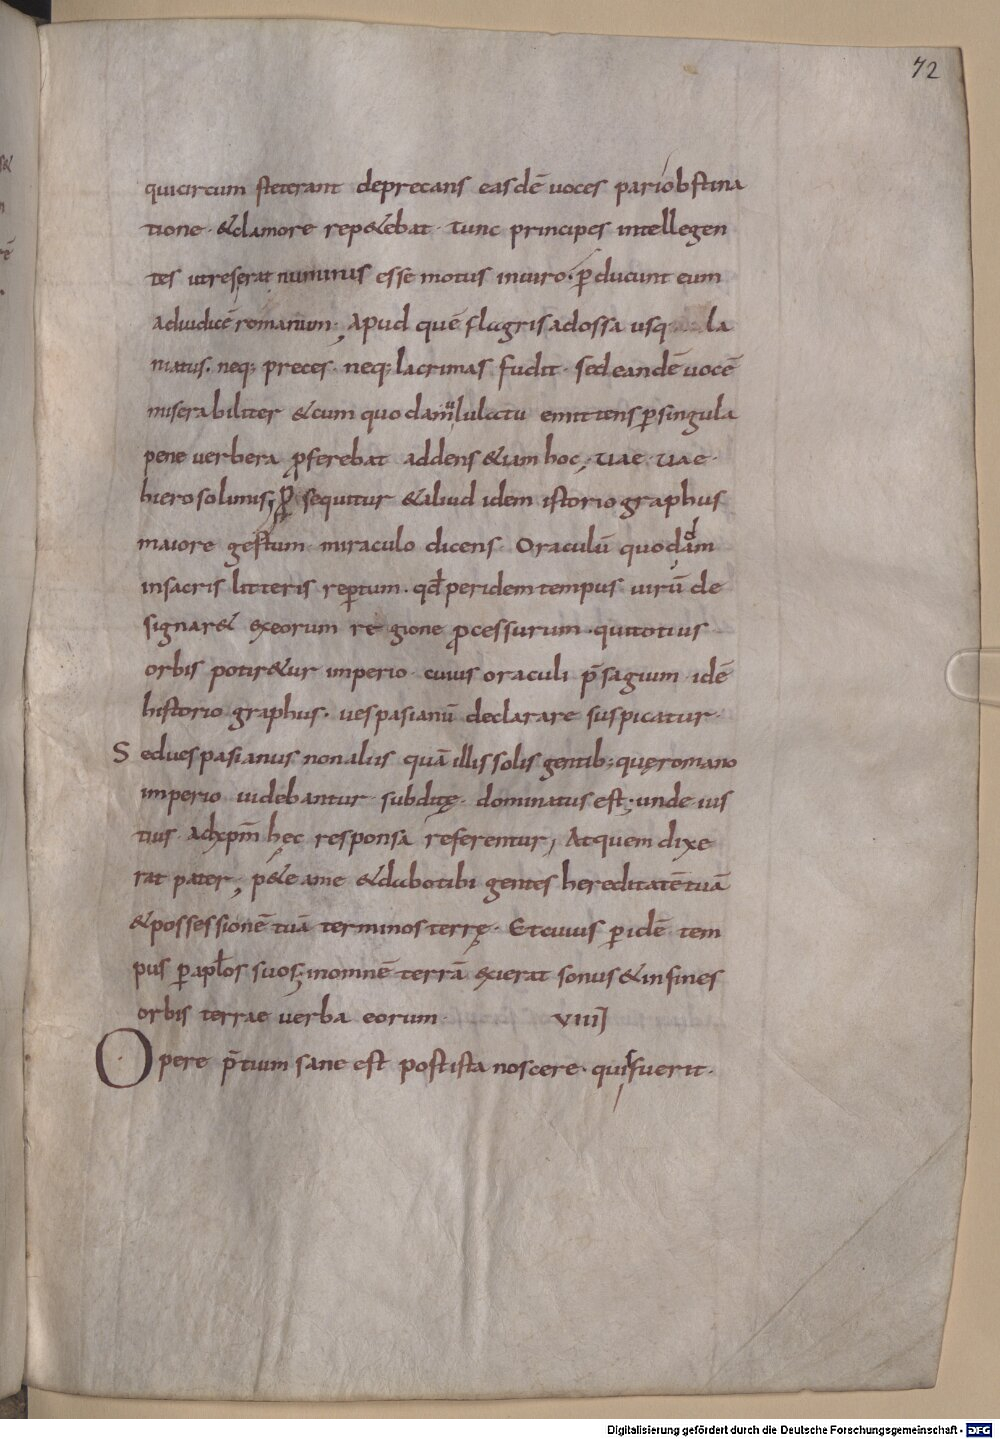 72
quicircum steterant deprecans easdē uoces pariobstina
tione · &clamore rep&ebat · tunc principes intellegen
tes utreserat numinis esse motus inuiro · ꝑducunt eum
adiudicē romanum ; Apud quē flagris adossa usq la
niatus · neq; preces · neq; lacrimas fudit · sed eandē uocē
miserabiliter &cum quodam ululatu emittens ꝑsingula
pene uerbera ꝓferebat addens &iam hoc ; uae · uae ·
hierosolimis ; ꝓsequitur &aliud idem istoriographus
maiore gestum miraculo dicens · Oraculū quoddam
insacris litteris reꝑtum · qđ peridem tempus uirū de
signar& exeorum regione ꝓcessurum · quitotius
orbis potir&ur imperio · cuius oraculi p̄sagium · idē
historiographus · uespasianū declarare suspicatur ·
Seduespasianus nonaliis quā illis solis gentib; quęromano
imperio uidebantur subditę · dominatus est ; unde ius
tius adxpm̄ hęc responsa referentur ; Atquem dixe
rat pater ; p&e ame &dabotibi gentes hereditatētuā
&possessionē tuā terminos terrę · Etcuius ꝑidē tem
pus ꝑaplos suos ; inomnē terrā exierat sonus &infines
orbis terrae uerba eorum · VIIII
Opere p̄tium sane est postista noscere · quisfuerit ·
Digitalisierung gefördert durch die Deutsche Forschungsgemeinschaft - DFG